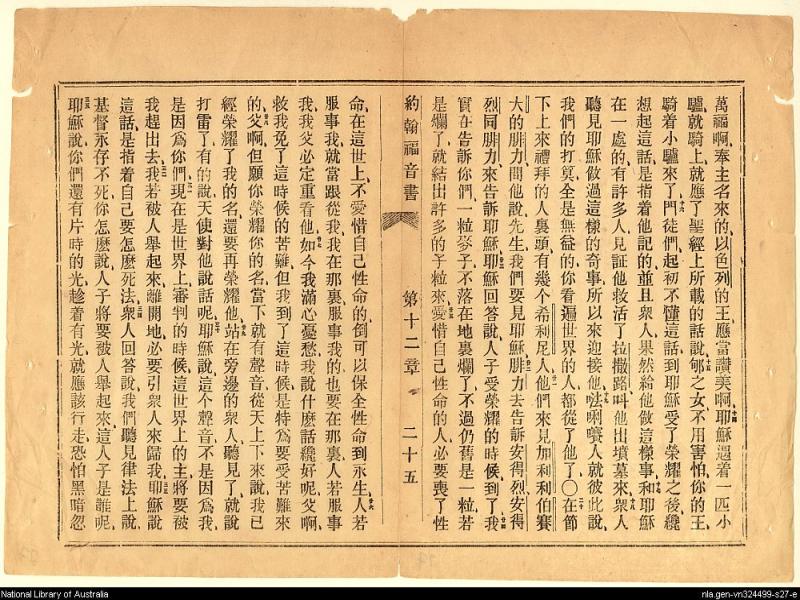 萬福啊、奉主名來的、以色列的王、應當讚美啊、十四耶穌遇着一匹小
驢、就騎上、就應了聖經上所載的話說、十五郇之女不用害怕、你的王
騎着小驢來了、十六門徒們起初不懂這話、到耶穌受了榮耀之後、纔
想起這話是指着他記的、並且衆人果然給他做這樣事、十七和耶穌
在一處的、有許多人見証他救活了拉撒路、叫他出墳墓來、十八衆人
聽見耶穌做過這樣的奇事、所以來迎接他、十九𠵽唎嚽人就彼此說、
我們的打算全是無益的、你看遍世界的人、都從了他了、〇二十在節
下上來禮拜的人裏頭、有幾個希利尼人、二一他們來見加利利伯賽
大的腓力、問他說、先生、我們要見耶穌、二二腓力去告訴安得烈、安得
烈同腓力來告訴耶穌、二三耶穌回答說、人子受榮耀的時候到了、二四我
實在告訴你們、一粒麥子不落在地裏爛了、不過仍舊是一粒、若
是爛了、就結出許多的子粒來、二五愛惜自己性命的人、必要喪了性
約翰福音書 第十二章 二十五
命、在這世上、不愛惜自己性命的、倒可以保全性命到永生、二六人若
服事我、就當跟從我、我在那裏、服事我的也要在那裏、人若服事
我、我父必定重看他、二七如今我滿心憂愁、我說什麽話纔好呢、父啊、
救我免了這時候的苦難、但我到了這時候、是特爲要受苦難來
的、二八父啊、但願你榮耀你的名、當下就有聲音從天上下來說、我已
經榮耀了我的名、還要再榮耀他、二九站在旁邊的衆人聽見了、就說
打雷了、有的說、天使對他說話呢、三十耶穌說、這个聲音不是因爲我、
是因爲你們、三一現在是世界上審判的時候、這世界上的主將要被
我趕出去、三二我若被人舉起來、離開地、必要引衆人來歸我、三三耶穌說
這話、是指着自己要怎麽死法、三四衆人回答說、我們聽見律法上說、
基督永存不死、你怎麽說人子將要被人舉起來、這人子是誰呢、
三五耶穌說、你們還有片時的光、趁着有光、就應該行走、恐怕黑暗忽
National Library of Australia
nla.gen-vn324499-s27-e